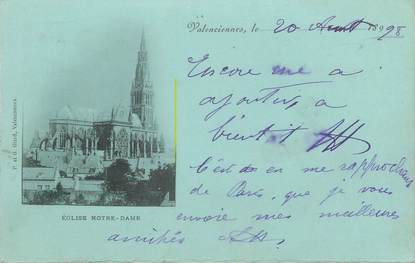 Valenciennes, le 20 Août 1898
Encore me a
ajouter, a
bientôt
C'est en me rapprochant
de Paris, que je vous
envoie mes meilleures
amitiés
P. et G. Giard, Valenciennes
ÉGLISE NOTRE-DAME